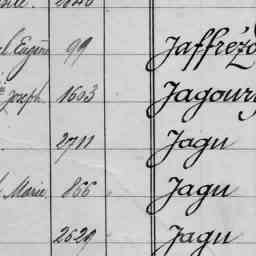 2840
Eugène 99 Jaffrézo
Joseph 1603 Jagoury
2711 Jagu
Marie 866 Jagu
2629 Jagu